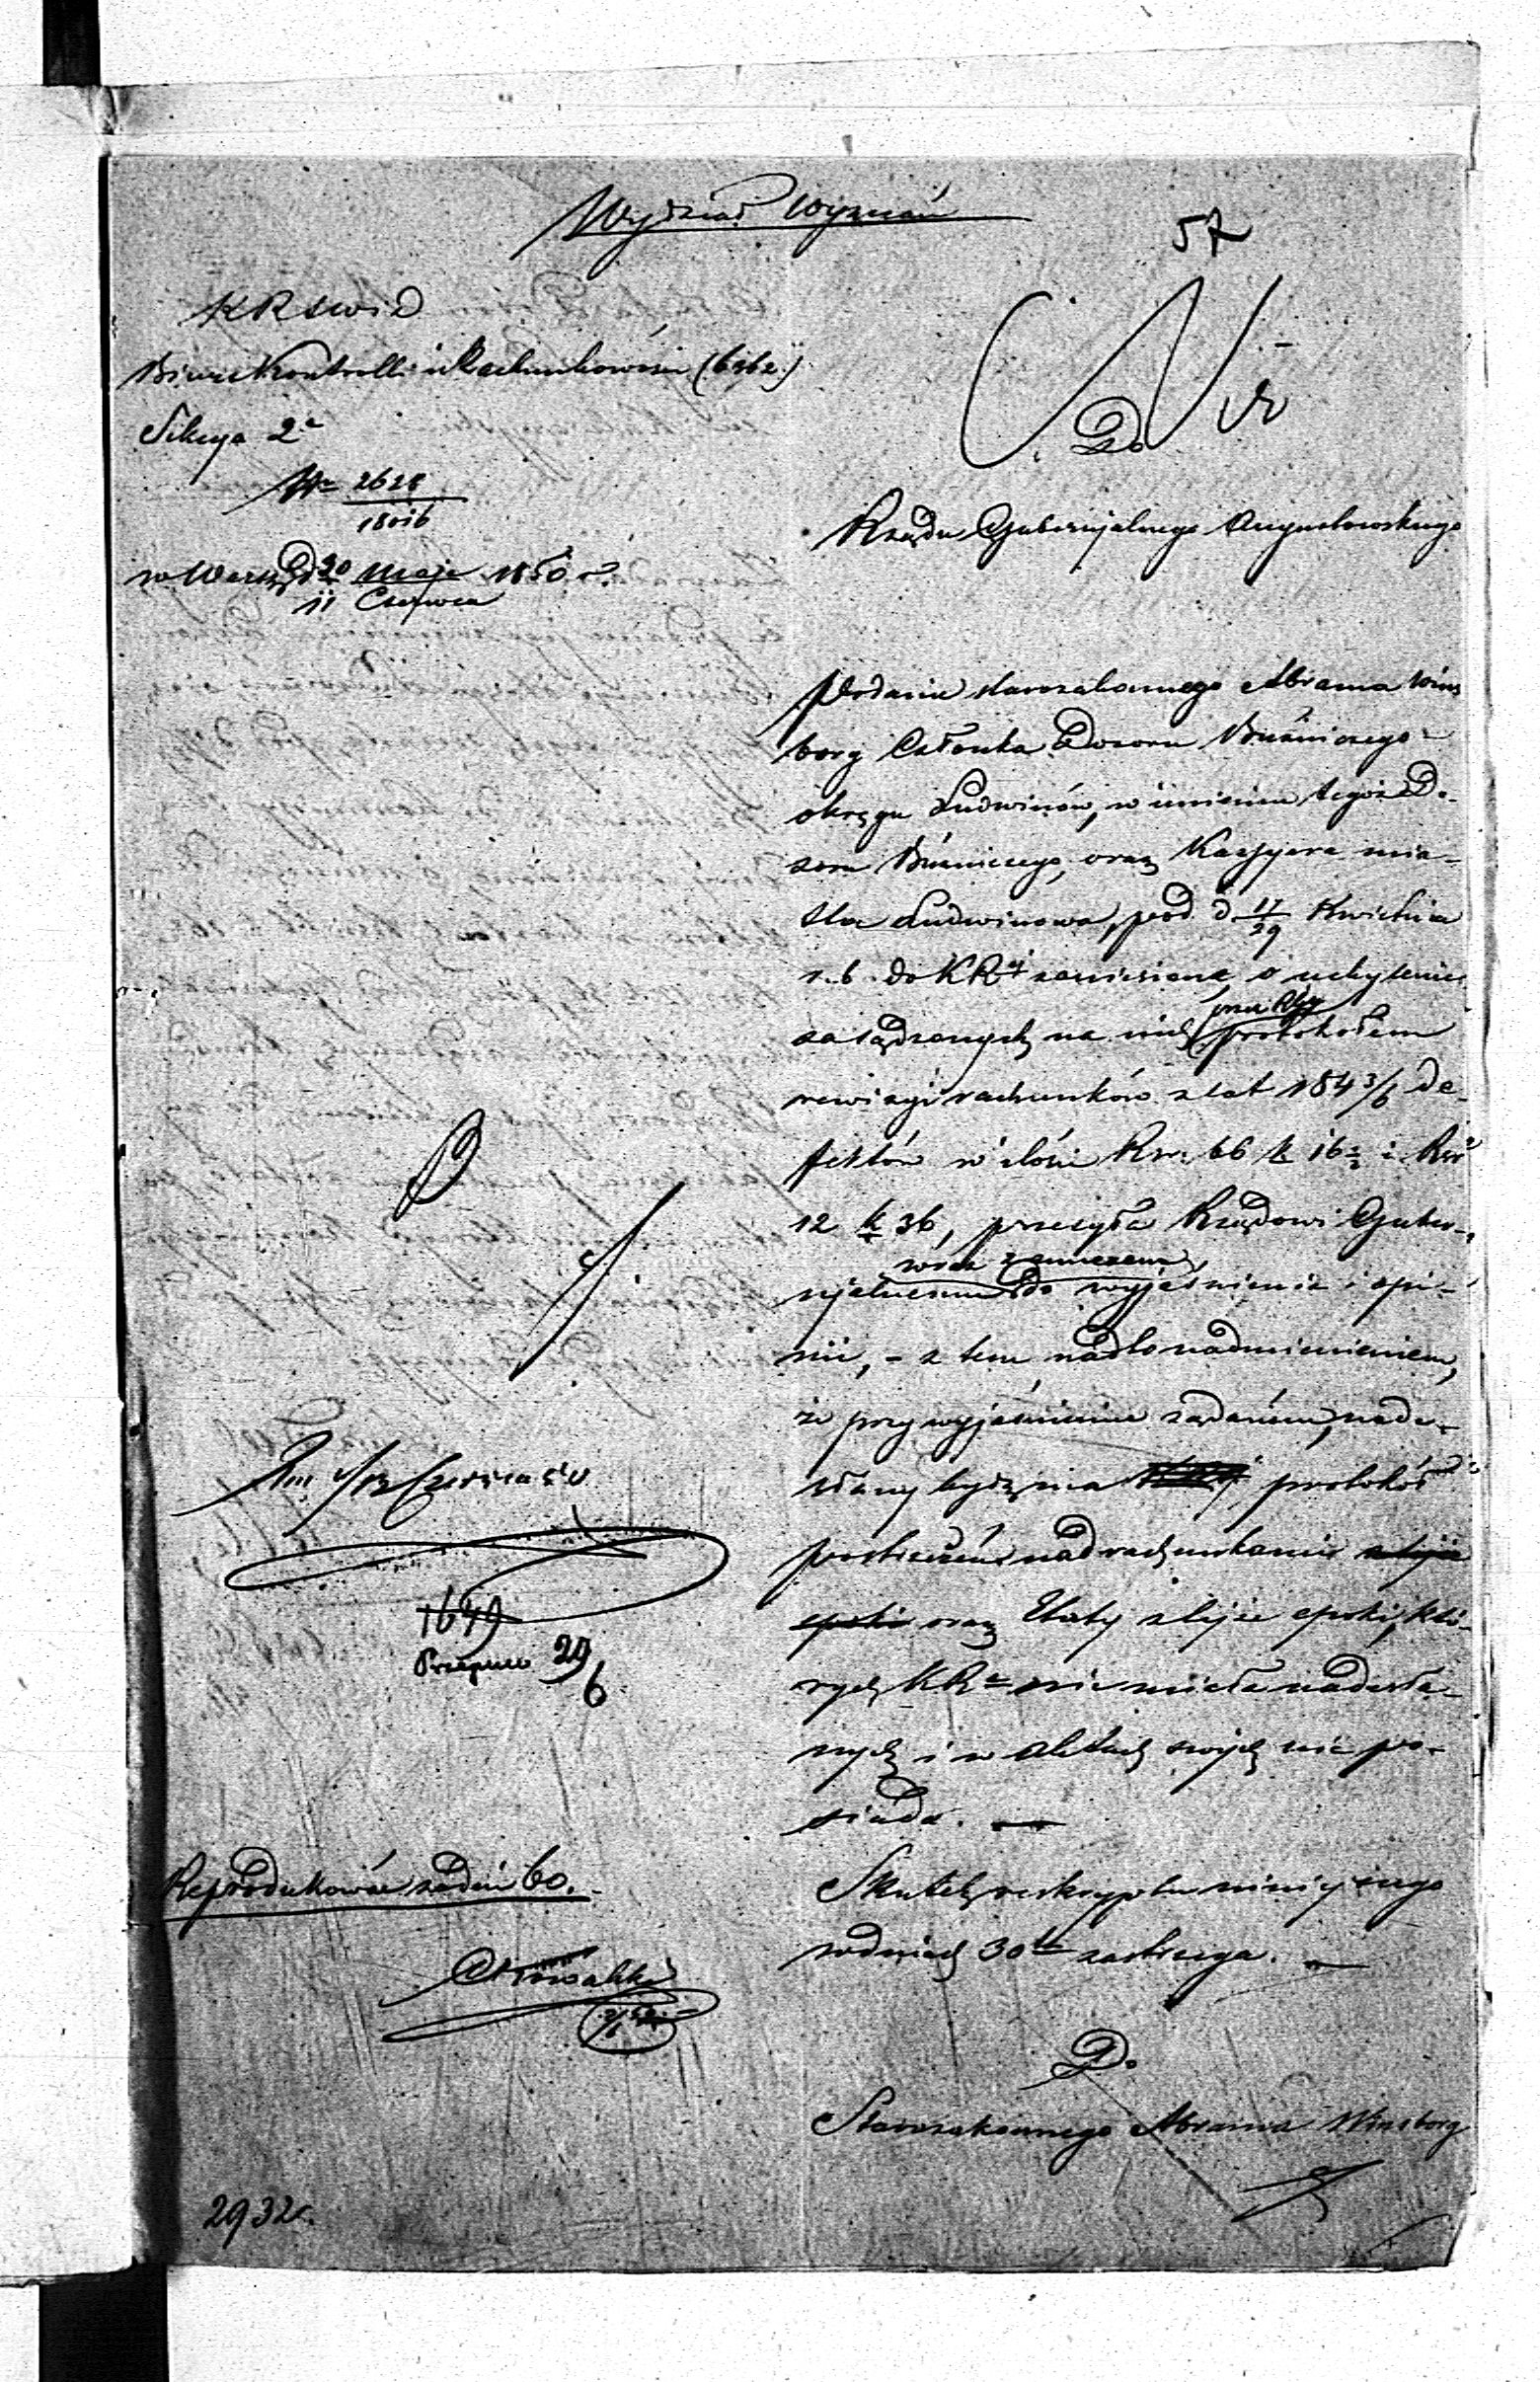 Wydział Wyznań
57
KRSWiD
Biuro Kontrolli i Rachunkowości
Sekcya 2a
Nr 2628
18016
w Warsz d 30 Maja 1850 r.
11 Czerwca
Do
Rządu Gubernijalnego Augustowskiego
Podanie starozakonnego Abrama Wins
borg Członka Dozoru Bużniczego
okręgu Ludwinów, w imieniu tegoż Do-
zoru Bużniczego, oraz Kassyera mia-
sta Ludwinowa, pod d 17/29 Kwietnia
r. b. do KRj zaniesione, o uchylenie
zasądzonych na nich protokołem
rewizyi rachunków z lat 1843/6 de-
fektów w ilości Rsr. 66 k 16½ i Rsr
12 k 36, przesyła Rządowi Guber-
nijalnemu do wyjaśnienia i opi-
nii, - z tem nadto nadmienieniem,
że przy wyjaśnieniu żądaném, nade-
słany być ma protokół
postrzeżeń nad rachunkami z tejże
epoki oraz Etaty z tejże epoki, któ-
rych KRa nie miała nadesła-
nych i w aktach swych nie po-
siada. —
Skutek reskryptu niniejszego
w dniach 30tu zastrzega. —
Do
Starozakonnego Abrama Winsborg
Czerwca
1649
29/6
Reprodukować za dni 60.
Kowalski
2932